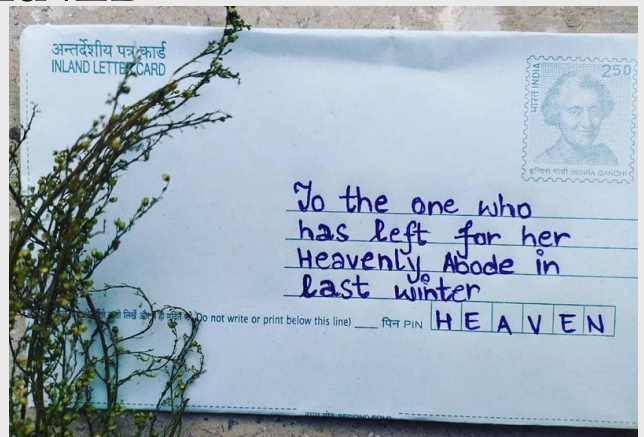 अन्तर्देशीय पत्र कार्ड
INLAND LETTER CARD
भारत INDIA
250
इन्दिरा गांधी INDIRA GANDHI
To the one who
has left for her
Heavenly Abode in
last winter
(Do not write or print below this line) पिन PIN HEAVEN
SECOND FOLD